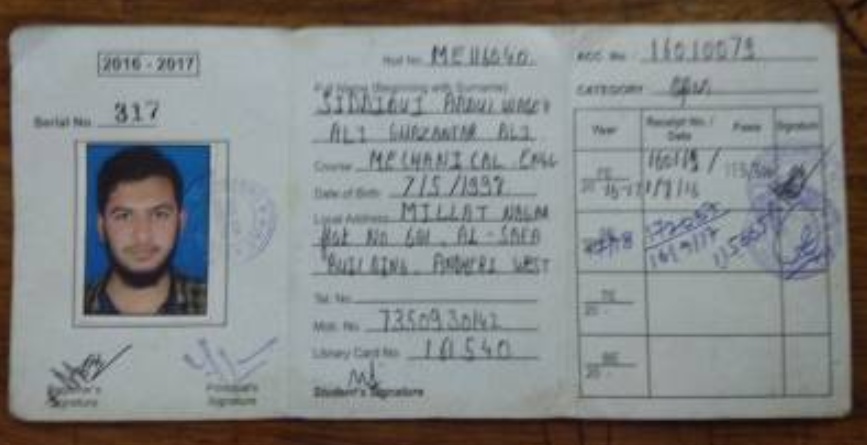 2016 - 2017
Serial No. 317
Registrar's
Signature
Principal's
Signature
Roll No. ME116040
Full Name (Beginning with Surname)
SIDDIQUI ABDUL WAHEB
ALI GHAZANFAR ALI
Course MECHANICAL ENGG
Date of Birth 7/5/1998
Local Address MILLAT NAGAR
flat No 601, AL-SAFA
BUILDING, ANDHERI WEST
Tel. No.
Mob. No. 7350930142
Library Card No. 1A540
Student's Signature
ACC. No. 16010079
CATEGORY open
Year Receipt No. / Date Fees Signature
FE
20 16-17
SE
TE
20
BE
20